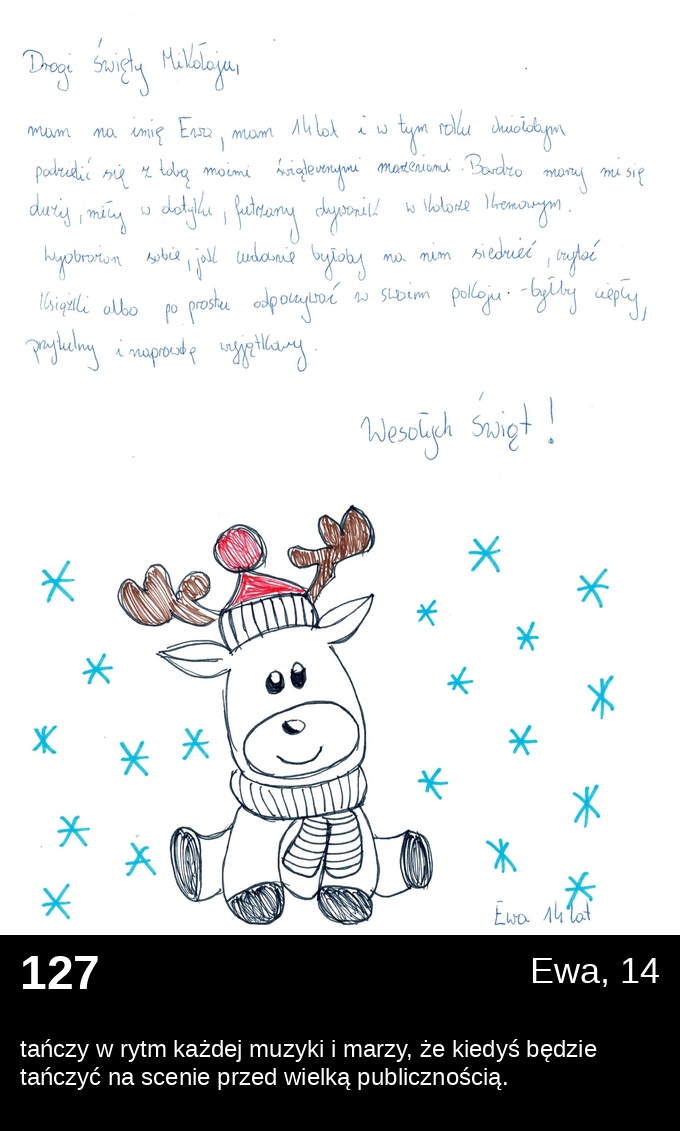 Drogi Święty Mikołaju,
mam na imię Ewa, mam 14 lat i w tym roku chciałabym
podzielić się z tobą moimi świątecznymi marzeniami. Bardzo marzy mi się
duży, miły w dotyku, futrzany dywanik w kolorze kremowym.
Wyobrażam sobie, jak cudownie byłoby na nim siedzieć, czytać
książki albo po prostu odpoczywać w swoim pokoju. -byłby ciepły,
przytulny i naprawdę wyjątkowy.
Wesołych Świąt!
Ewa 14 lat
127
Ewa, 14
tańczy w rytm każdej muzyki i marzy, że kiedyś będzie
tańczyć na scenie przed wielką publicznością.